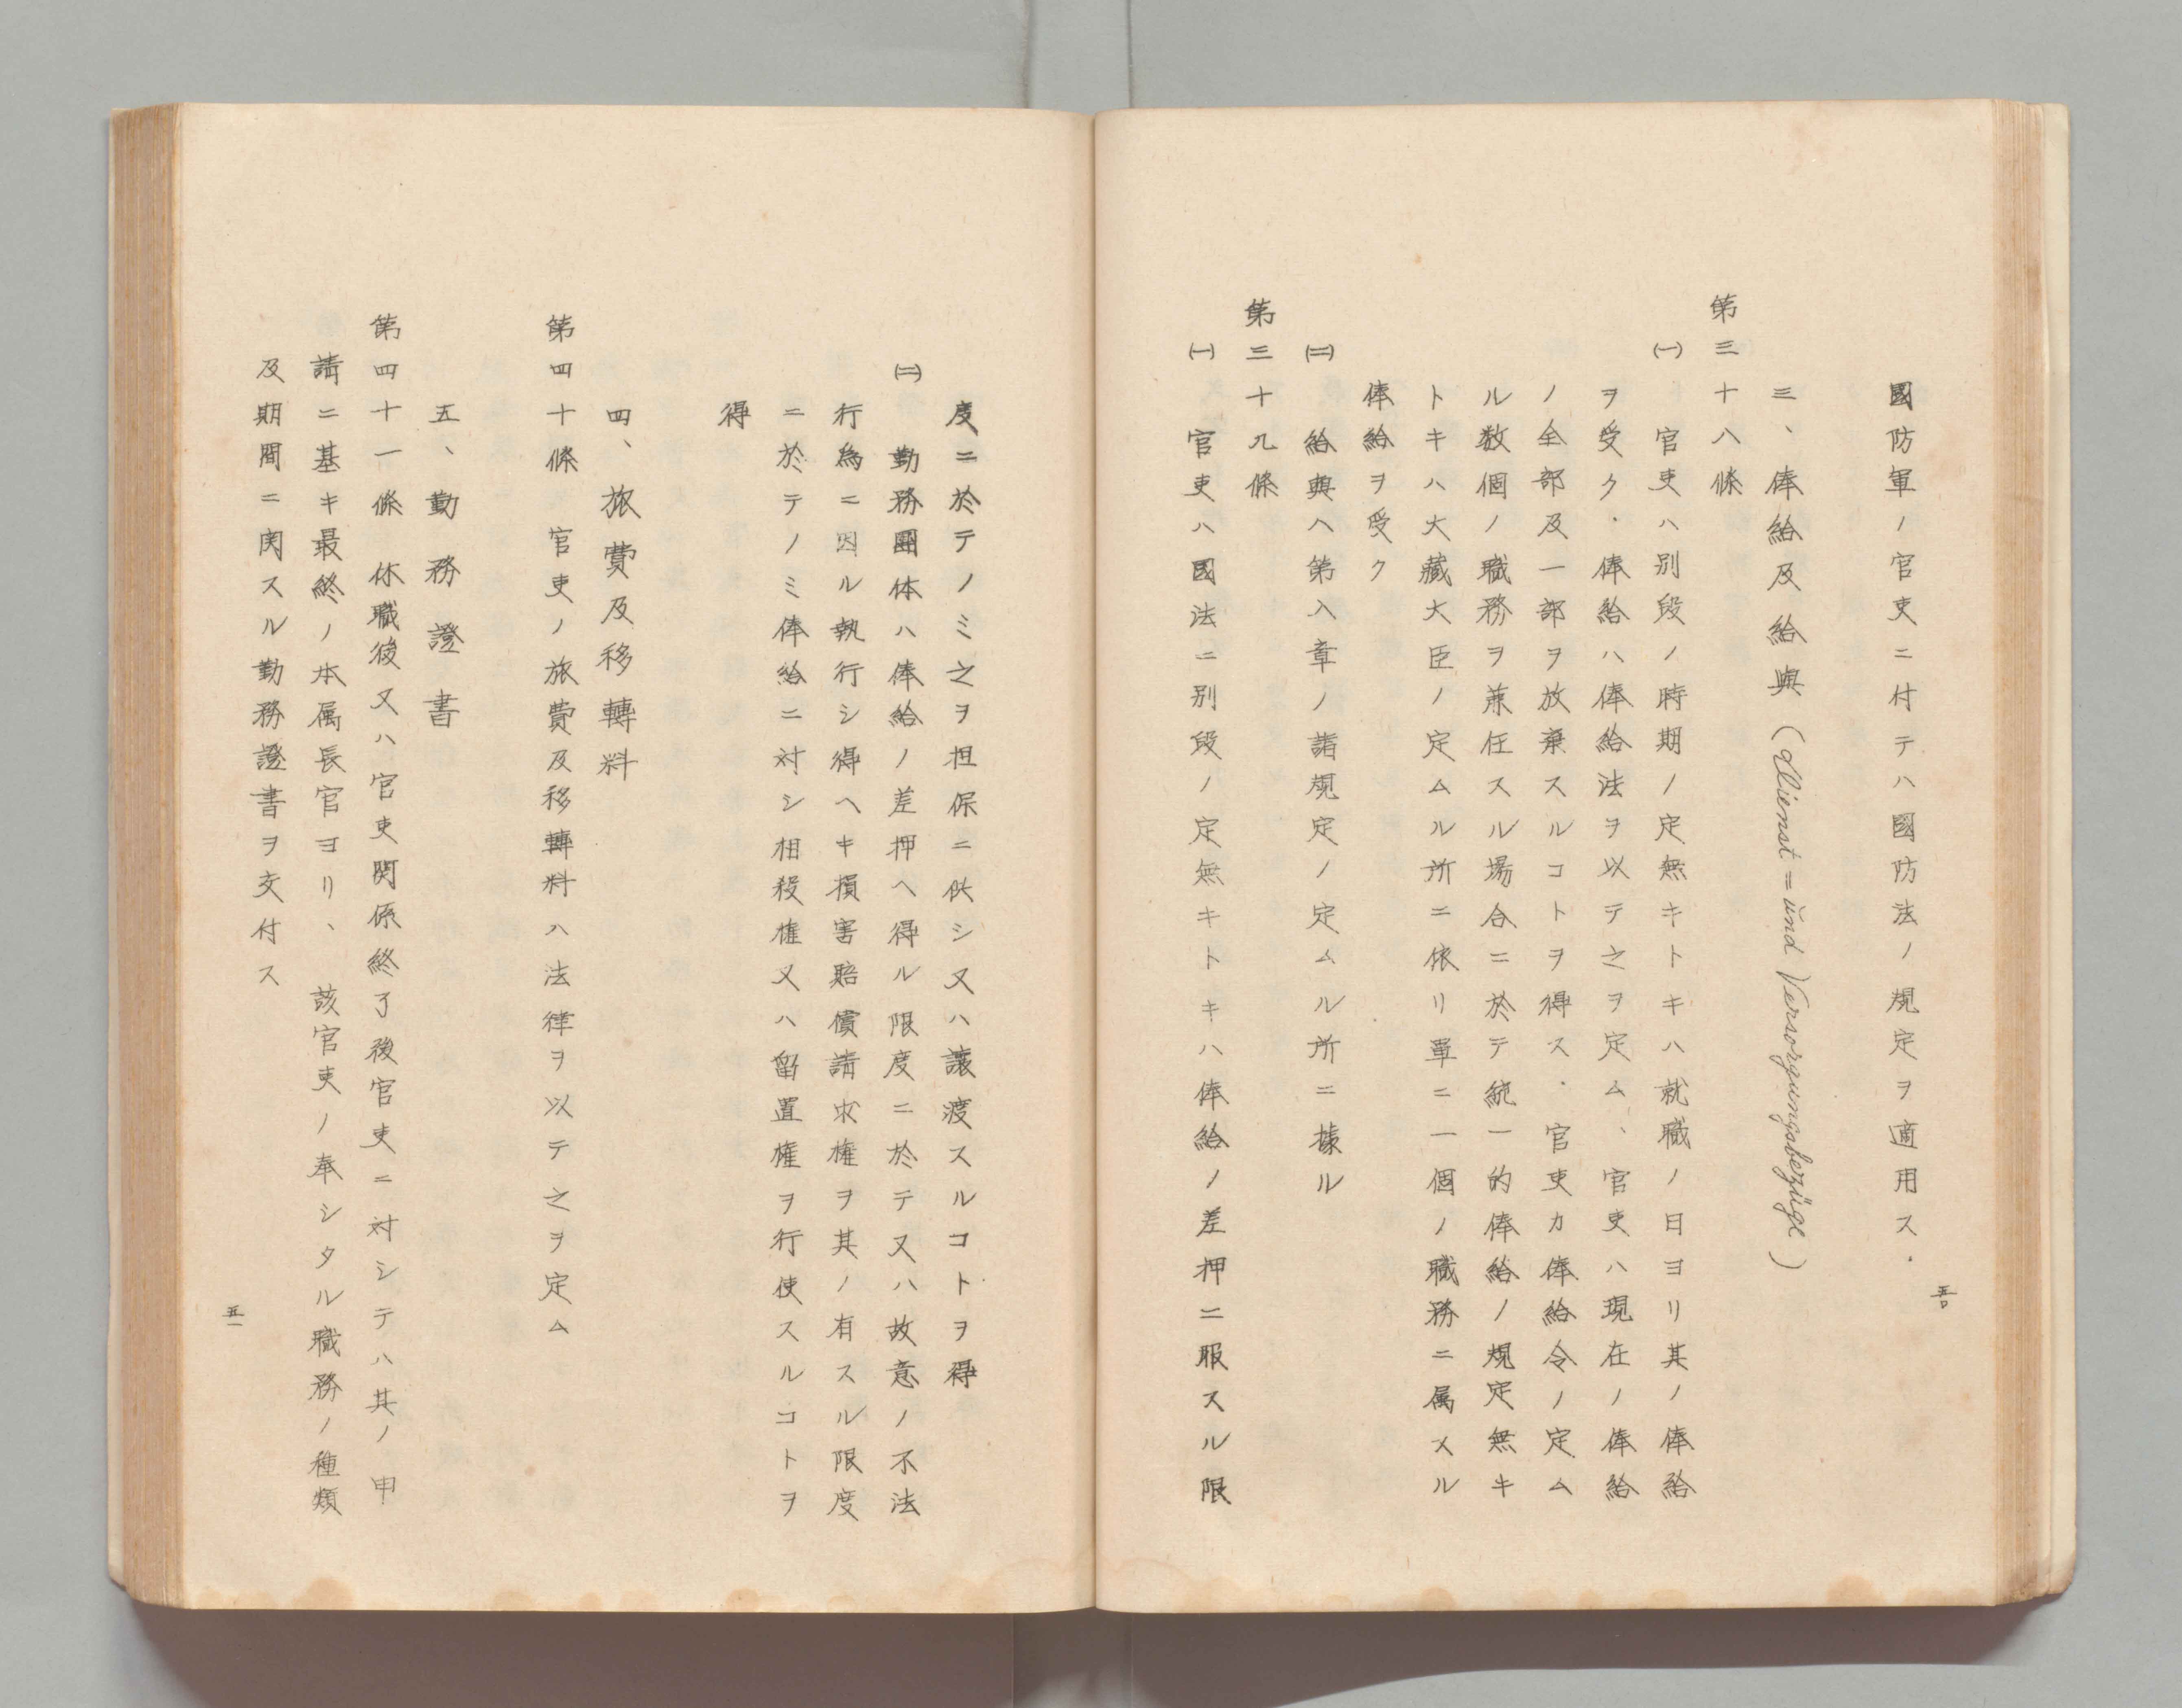 國防軍ノ官吏ニ付テハ國防法ノ規定ヲ適用ス.
三、俸給及給與(Dienst=und Versorgungsbezüge)
第三十八條
㈠官吏ハ別段ノ時期ノ定無キトキハ就職ノ日ヨリ其ノ俸給
ヲ受ク.俸給ハ俸給法ヲ以テ之ヲ定ム、官吏ハ現在ノ俸給
ノ全部及一部ヲ放棄スルコトヲ得ス.官吏カ俸給令ノ定ム
ル数個ノ職務ヲ兼任スル場合ニ於テ統一的俸給ノ規定無キ
トキハ大藏大臣ノ定ムル所ニ依リ單ニ一個ノ職務ニ属スル
俸給ヲ受ク
㈡給與ヘ第八章ノ諸規定ノ定ムル所ニ據ル
第三十九條
㈠官吏ハ國法ニ別段ノ定無キトキハ俸給ノ差押ニ服スル限
五〇
度ニ於テノミ之ヲ担保ニ供シ又ハ讓渡スルコトヲ得
㈡勤務團体ハ俸給ノ差押ヘ得ル限度ニ於テ又ハ故意ノ不法
行為ニ因ル執行シ得ヘキ損害賠償請求権ヲ其ノ有スル限度
ニ於テノミ俸給ニ対シ相殺権又ハ留置権ヲ行使スルコトヲ
得
四、旅費及移轉料
第四十條 官吏ノ旅費及移轉料ハ法律ヲ以テ之ヲ定ム
五、勤務證書
第四十一條 休職後又ハ官吏関係終了後官吏ニ対シテハ其ノ申
請ニ基キ最終ノ本属長官ヨリ、該官吏ノ奉シタル職務ノ種類
及期間ニ関スル勤務證書ヲ交付ス
五一